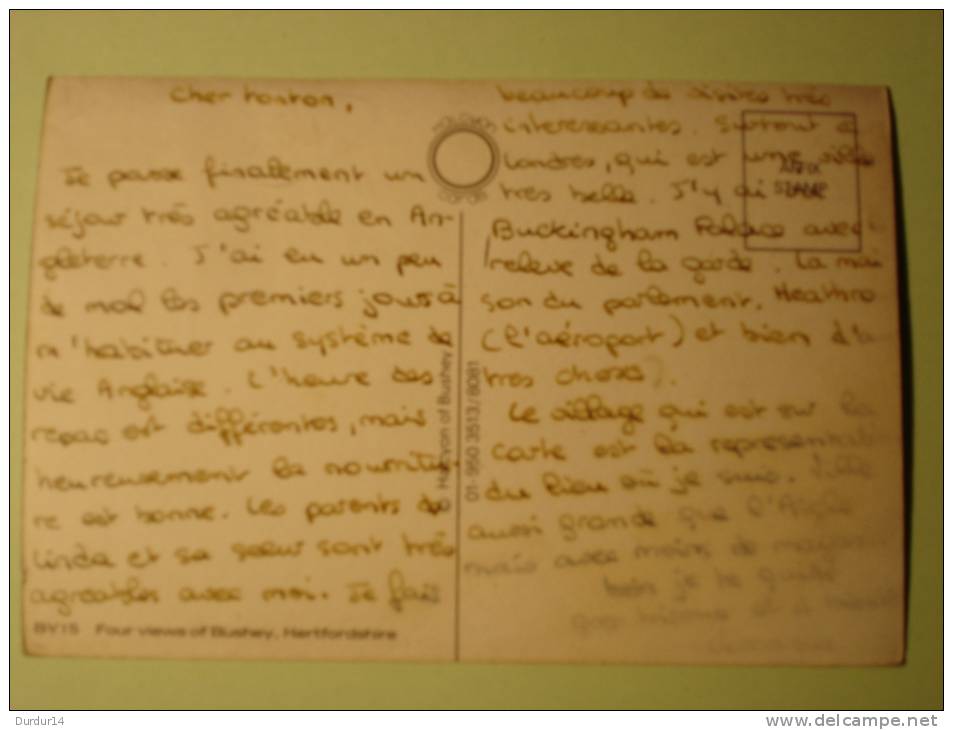 Cher tonton,
Je passe finalement un
séjour très agréable en An-
gleterre. J'ai eu un peu
de mal les premiers jours à
m'habituer au système de
vie Anglaise. L'heure des
repas est différentes, mais
heureusement la nourritu-
re est bonne. Les parents de
Linda et sa soeur sont très
agréables avec moi. Je fais
BY15 Four views of Bushey, Hertfordshire
© Halcyon of Bushey
01-950 3513/8081
beaucoup de visites très
interessantes. Surtout à
Londres, qui est une ville
très belle. J'y ai
Buckingham Palace avec
releve de la garde. La mai
son du parlement, Heathro
(l'aéroport) et bien d'au
tres choses).
Le village qui est sur la
carte est la representati
du lieu où je suis. Ville
aussi grande que l'Aigle
mais avec moins de magasin
je te quitte
AFFIX
STAMP
Durdur14
www.delcampe.net